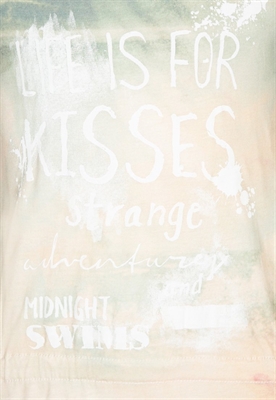 LIFE IS FOR
KISSES
strange
adventures
and
MIDNIGHT
SWIMS